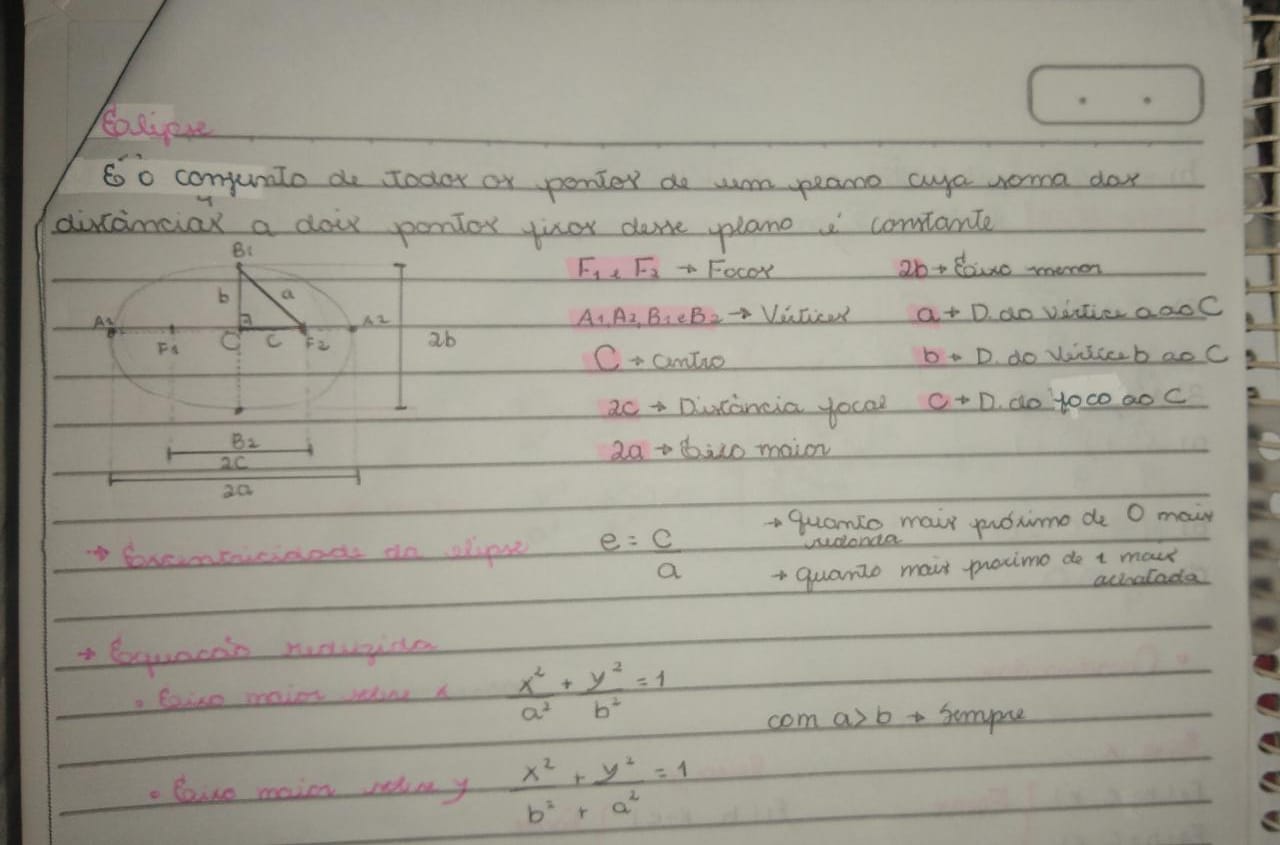 Elipse
É o conjunto de todos os pontos de um plano cuja soma das
distâncias a dois pontos fixos desse plano é constante
B1
b a
A1 F1 C c F2 A2
2b
B2
2C
2a
F1 e F2 → Focos
A1, A2, B1 e B2 → Vértices
C → centro
2c → Distância focal
2a → Eixo maior
2b → Eixo menor
a → D. do vértice a ao C
b → D. do vértice b ao C
C → D. do foco ao C
→ Excentricidade da elipse e = c/a
→ quanto mais próximo de 0 mais
redonda
→ quanto mais proximo de 1 mais
achatada
→ Equação reduzida
• Eixo maior sobre x x²/a² + y²/b² = 1
com a > b → Sempre
• Eixo maior sobre y x²/b² + y²/a² = 1